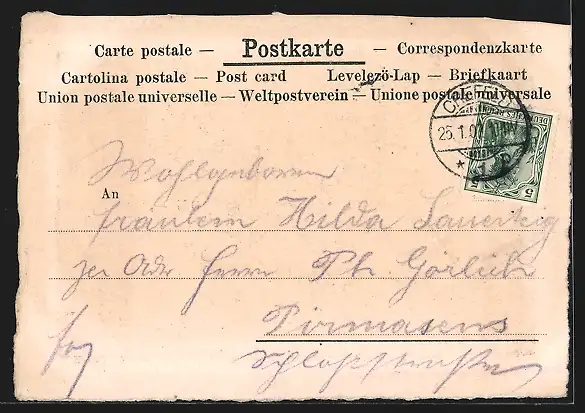 Carte postale — Postkarte — Correspondenzkarte
Cartolina postale — Post card Levelezö-Lap — Briefkaart
Union postale universelle — Weltpostverein — Unione postale universale
CREFELD
25.1.0
5
Wohlgeboren
An
Fräulein Hilda
per Adr Herrn Ph. Görlich
Pirmasens
Schloßstraße